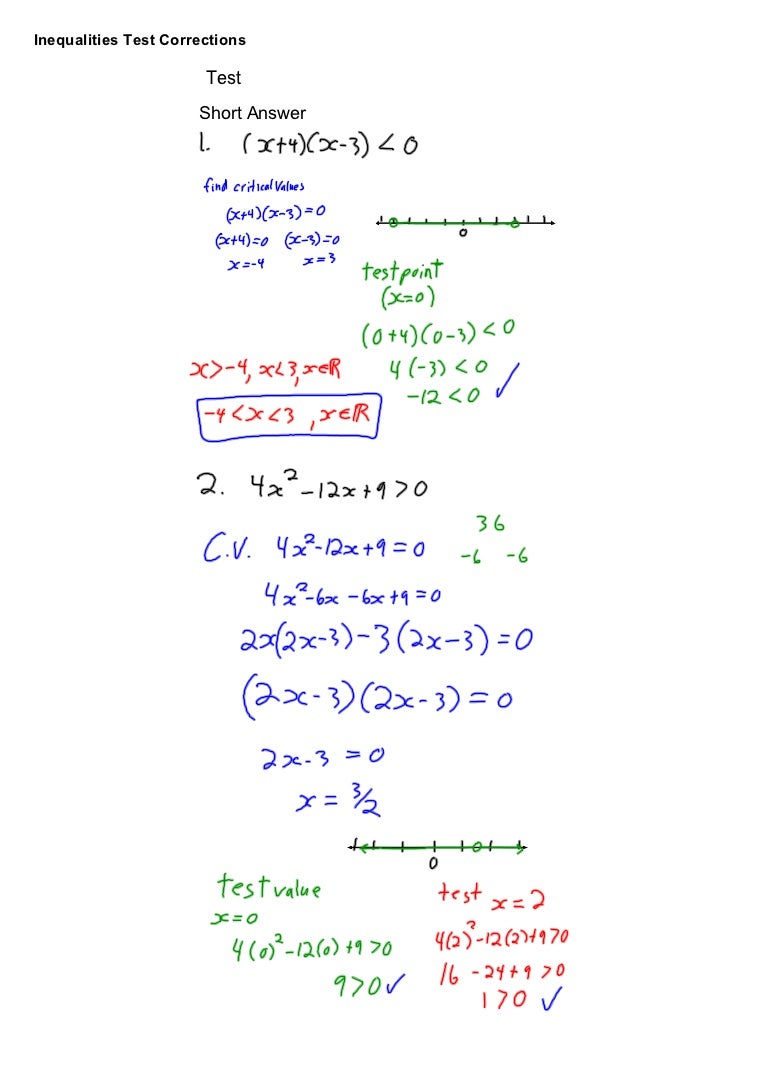 Inequalities Test Corrections
Test
Short Answer
1. (x+4)(x-3) < 0
find critical Values
(x+4)(x-3)=0
(x+4)=0 (x-3)=0
x=-4 x=3
0
test point
(x=0)
(0+4)(0-3) < 0
4(-3) < 0
-12 < 0 ✓
x>-4, x<3, x∈ℝ
-4<x<3, x∈ℝ
2. 4x²-12x+9>0
36
-6 -6
C.V. 4x²-12x+9=0
4x²-6x-6x+9=0
2x(2x-3)-3(2x-3)=0
(2x-3)(2x-3)=0
2x-3=0
x=3/2
0
test value
x=0
4(0)²-12(0)+9>0
9>0 ✓
test x=2
4(2)²-12(2)+9>0
16-24+9>0
1>0 ✓